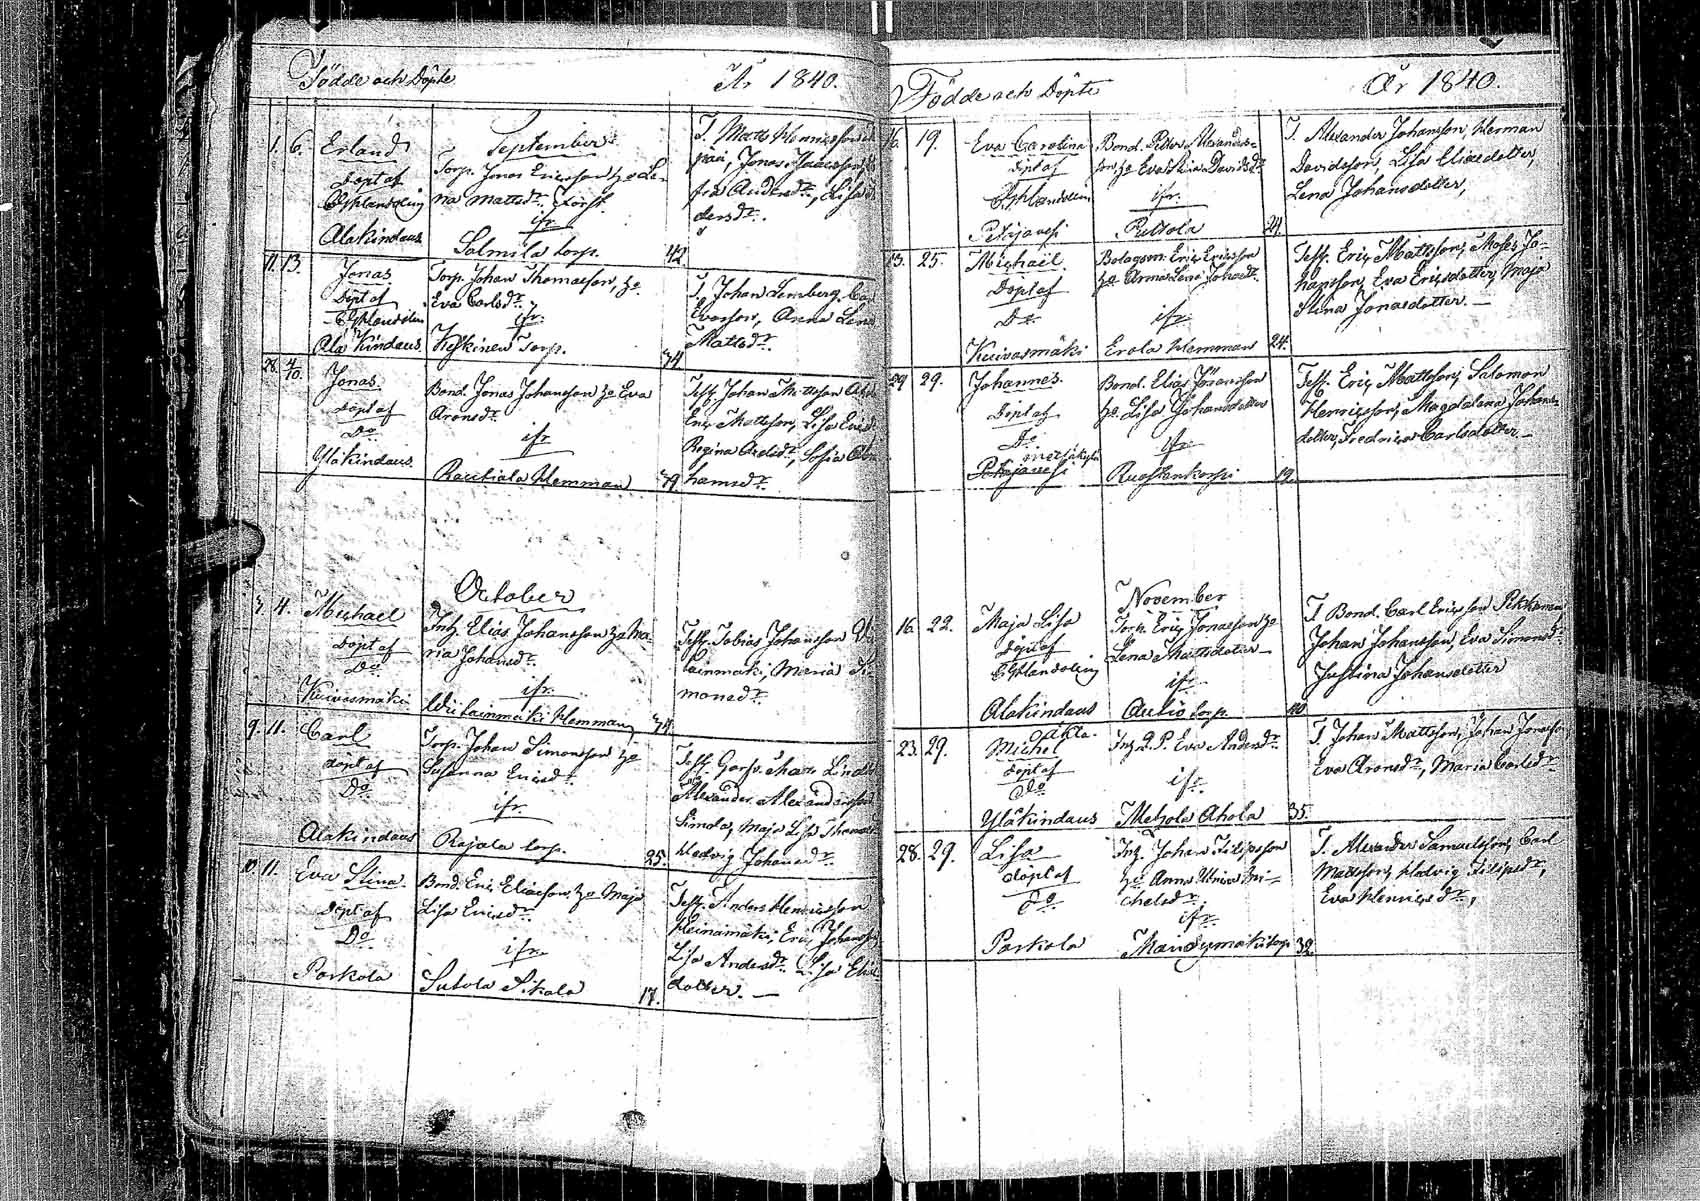 Födde och Döpte År 1840.
September.
1. 6. Erland
Döpt af
Alakindaus
Torp. Jonas Ericsson h:o Le-
na Mattsdr.
ifr.
Salmila torp. 42
T. Matts Henricsson
Jonas Isacsson,
Andersdr.,
dersdr.
11. 13. Jonas
Döpt af
Ala Kindaus
Torp. Johan Thomasson, h:o
Eva Carlsdr.
ifr.
Heskinen Torp. 34
T. Johan Lemberg,
Anna Lena
Mattsdr.
28. 4/10. Jonas
Döpt af
Do
Yläkindaus.
Bond. Jonas Johansson h:o Eva
Aronsdr.
ifr
Hemman 39.
Test. Johan Mattsson
Eric Mattsson, Lisa
Regina Axelsdr., Sofia Abra
hamsdr.
October
3. 4. Michael
Döpt af
Do
Kuivasmäki
Inh. Elias Johansson h:o Ma-
ria Johansdr.
ifr.
Wiitainmäki Hemman 34
Test. Tobias Johansson Wi
tainmäki, Maria Si
monsdr.
9. 11. Carl
Döpt af
Do
Alakindaus
Torp. Johan Simonsson h:o
Susanna Ericsdr.
ifr.
Rajala torp. 25.
Test. Matts
Alexander Alexandersson
Simola, Maja Lisa Thomas
Hedvig Johansdr.
10. 11. Eva Stina.
Döpt af
Do
Parkola
Bond. Eric Eliasson h:o Maja
Lisa Ericsdr.
ifr.
Sutola Sikala 17.
Test. Anders Henricsson
Heinämäki, Eric Johansson
Lisa Andersdr. Lisa Elias
dotter. —
Födde och Döpte År 1840.
16. 19. Eva Carolina
Döpt af
Petäjävesi
Bond. Petter Alexanders-
son, h:o Eva Stina Davidsdr.
ifr.
Puttola 24.
T. Alexander Johansson, Herman
Davidsson, Lisa Eliaedotter,
Lena Johansdotter,
23. 25. Michael.
Döpt af
Do
Kuivasmäki
Bolagsm. Eric Ericsson
h:o Anna Lena Johansdr.
ifr.
Erola Hemman 24.
Test. Eric Mattsson, Moses Jo-
hansson, Eva Ericsdotter, Maja
Stina Jonasdotter. —
29 29. Johannes.
Döpt af
Do
Petäjävesi
Bond. Elias Jöransson
h:o Lisa Johansdotter
ifr.
19.
Test. Eric Mattsson, Salomon
Henricsson, Magdalena Johans-
dotter, Fredrica Carlsdotter. —
November
16. 22. Maja Lisa
Döpt af
Alakindaus
Torp. Eric Jonasson h:o
Lena Mattsdoter —
ifr
Autio torp. 40
T. Bond. Carl Ericsson
Johan Johansson, Eva Simonsdr.
Justina Johansdotter
23. 29. Michel oäkta.
Döpt af
Do
Yläkindaus
Inh. Q. P. Eva Andersdr.
ifr.
Mehola Ahola 35.
T. Johan Mattsson, Johan Jonasson
Eva Aronsdr., Maria Carlsdr.
28. 29. Lisa
Döpt af
Do
Parkola
Inh. Johan Filipsson
h:o Anna Ulrica Mi-
chelsdr.
ifr.
torp 32.
T. Alexander Samuelsson, Carl
Mattsson, Hedvig Filipsdr.,
Eva Henricsdr.,